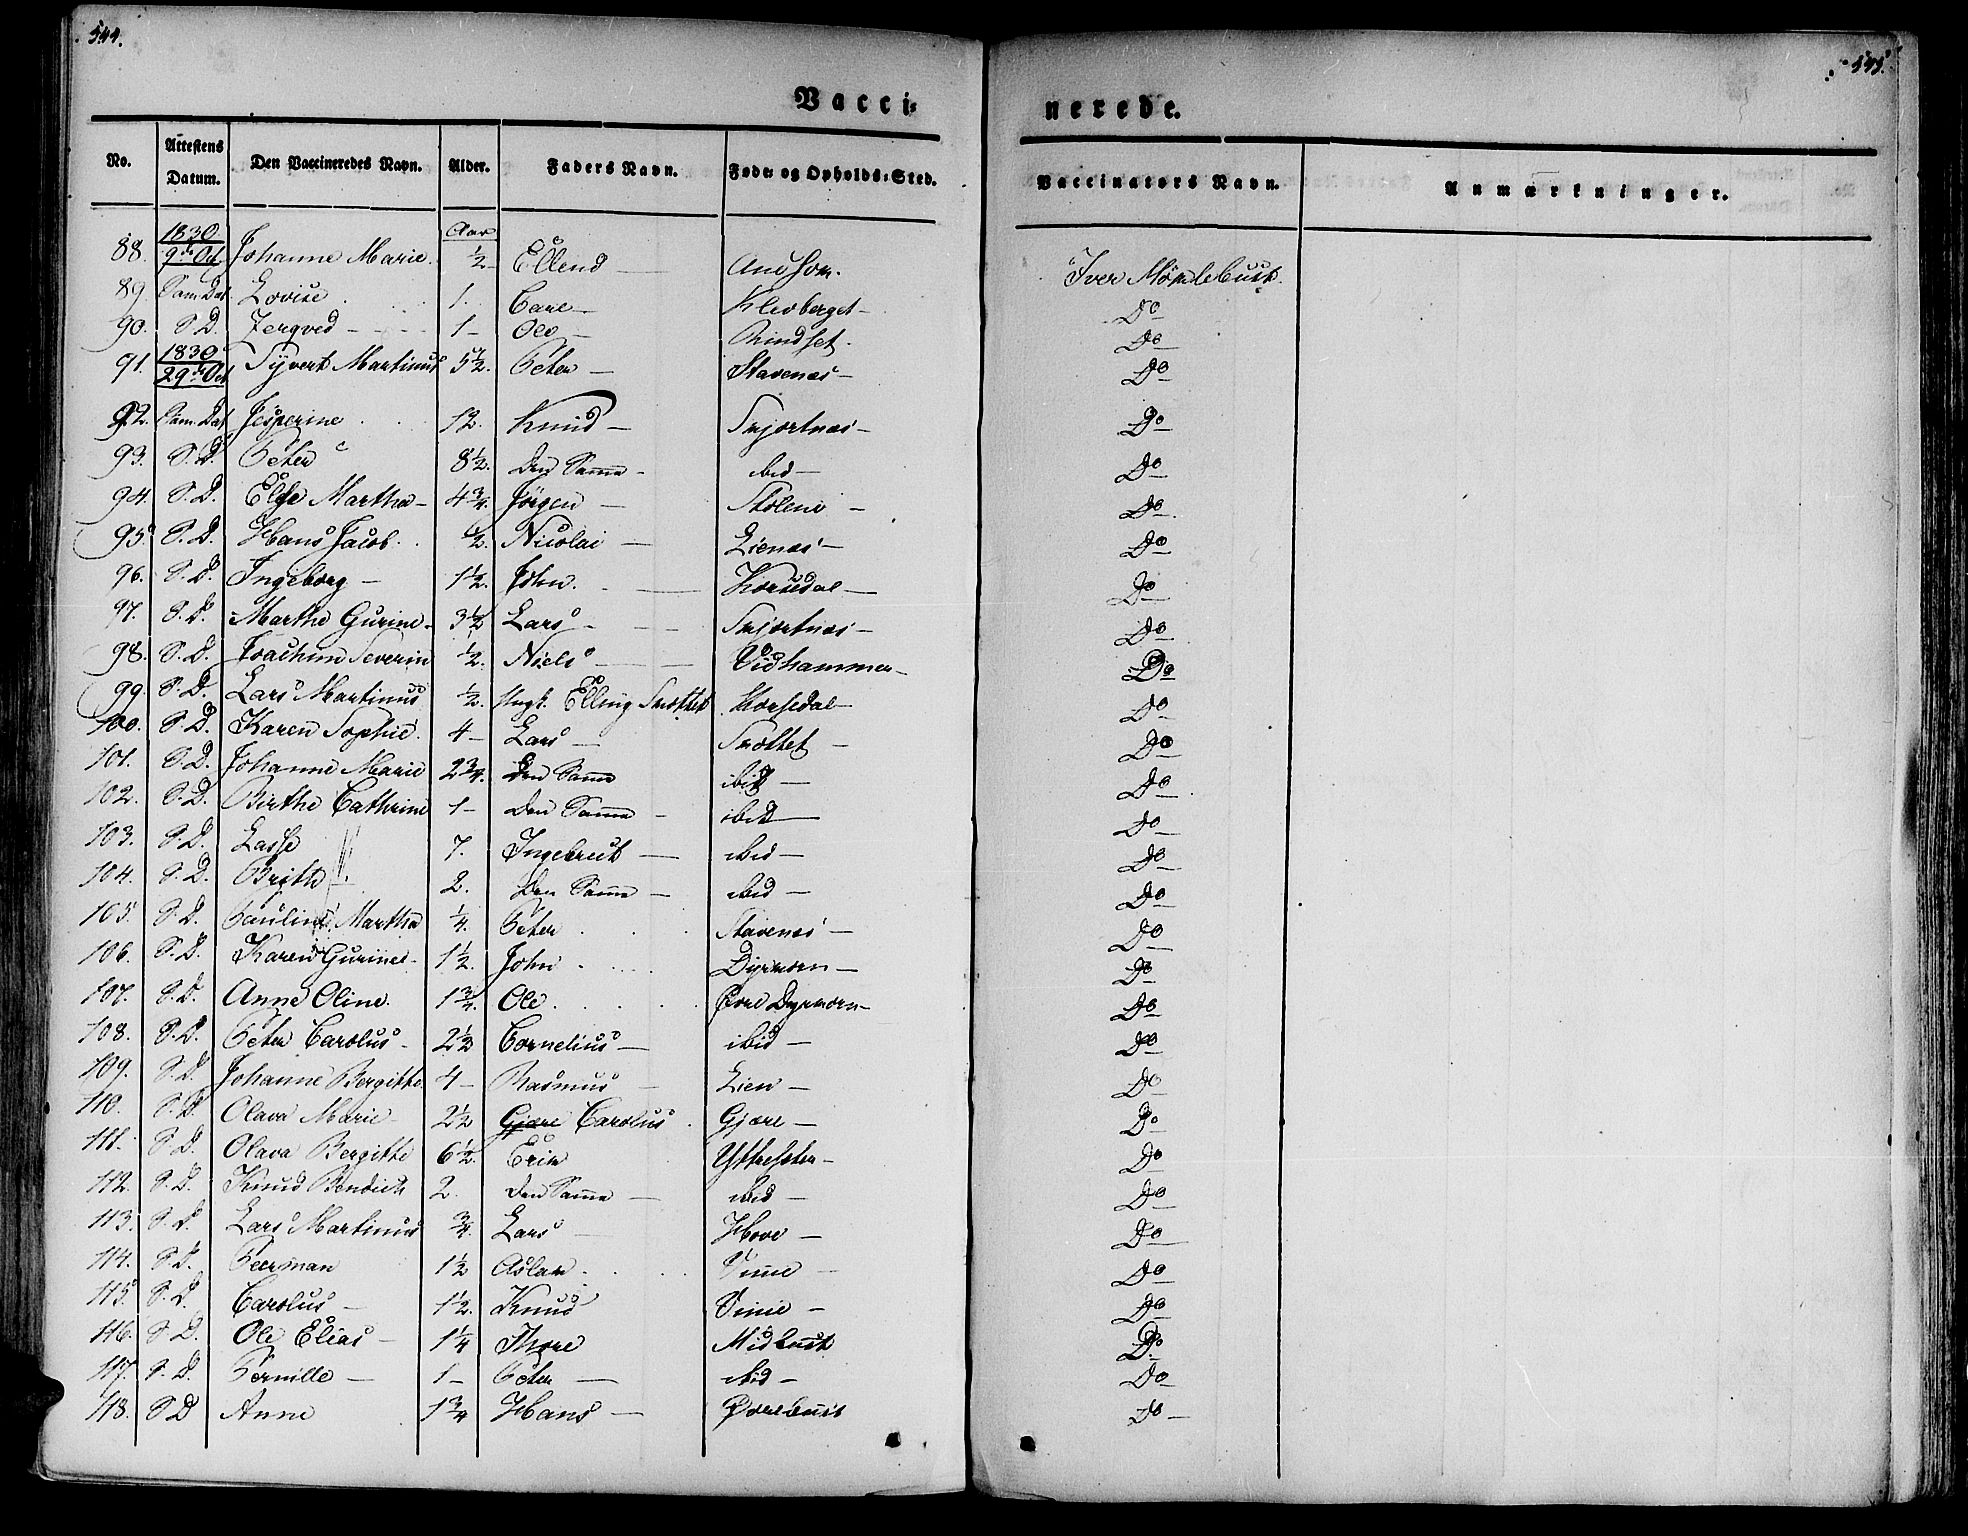 544.
545.
Vacci-
nerede.
No. Attestens Datum. Den Vaccineredes Navn. Alder. Faders Navn. Føde- og Opholds-Sted. Vaccinators Navn. Anmærkninger.
1830 Aar
88. 9de Oct Johanne Marie. ½ Ellend Iver Mörklebust.
89. Sam. Dat. Lovise 1. Do
90. S. D. 1 - Ole - Rindset. Do
1830
91. 29de Oct Syvert Martinus 5½. Peter - Stavenæs - Do
92. Sam. Dat Jesperine 12. Knud - Skjortnæs - Do
93. S. D. Peter 8½. Den Samme - ibid - Do
94. S. D. Else Martha - 4¾. Jörgen - Stölene - Do
95. S. D. Hans Jacob. ½. Nicolai - Lienæs - Do
96. S. D. Ingeborg - 1½. John. - Korsedal - Do
97. S. D. Marthe Gurine - 3½ Lars - Skjortnæs - Do
98. S. D. Joachim Severin ½. Niels - Vidhammer - Do
99. S. D. Lars Martinus ½. Ungk. Elling Skottet Korsedal - Do
100. S. D. Karen Sophie. 4 - Lars - Skottet - Do
101. S. D. Johanne Marie 2¾. Den Samme ibid - Do
102. S. D. Birthe Cathrine 1 - Den Samme - ibid - Do
103. S. D. Lasse 7. Ingebret - ibid - Do
104. S. D. Brithe 2. Den Samme - ibid - Do
105. S. D. Pauline Martha ¼. Peter Stavenæs - Do
106. S. D. Karen Gurine - 1½. John Dyrkorn - Do
107. S. D. Anne Oline. 1¾. Ole Övre Dyrkorn - Do
108. S. D. Peter Carolus - 2½ Cornelius - ibid - Do
109. S. D. Johanne Bergitte 4 - Rasmus - Lien - Do
110. S. D. Olava Marie - 2½ Gjære Carolus Gjære - Do
111. S. D. Olava Bergitte 6½. Erik Do
112. S. D. Knud Bendick 2. Den Samme - ibid - Do
113. S. D. Lars Martinus ¾. Lars Hove - Do
114. S. D. Peerman 1½ Aslak. Vinie - Do
115. S. D. Carolus - 1½. Knud Vinie - Do
116. S. D. Ole Elias - 1¼ Thore Midbust Do
117. S. D. Pernille - 1 - Peter - ibid - Do
118. S D Anne 1¾ Hans - Övrebust Do -